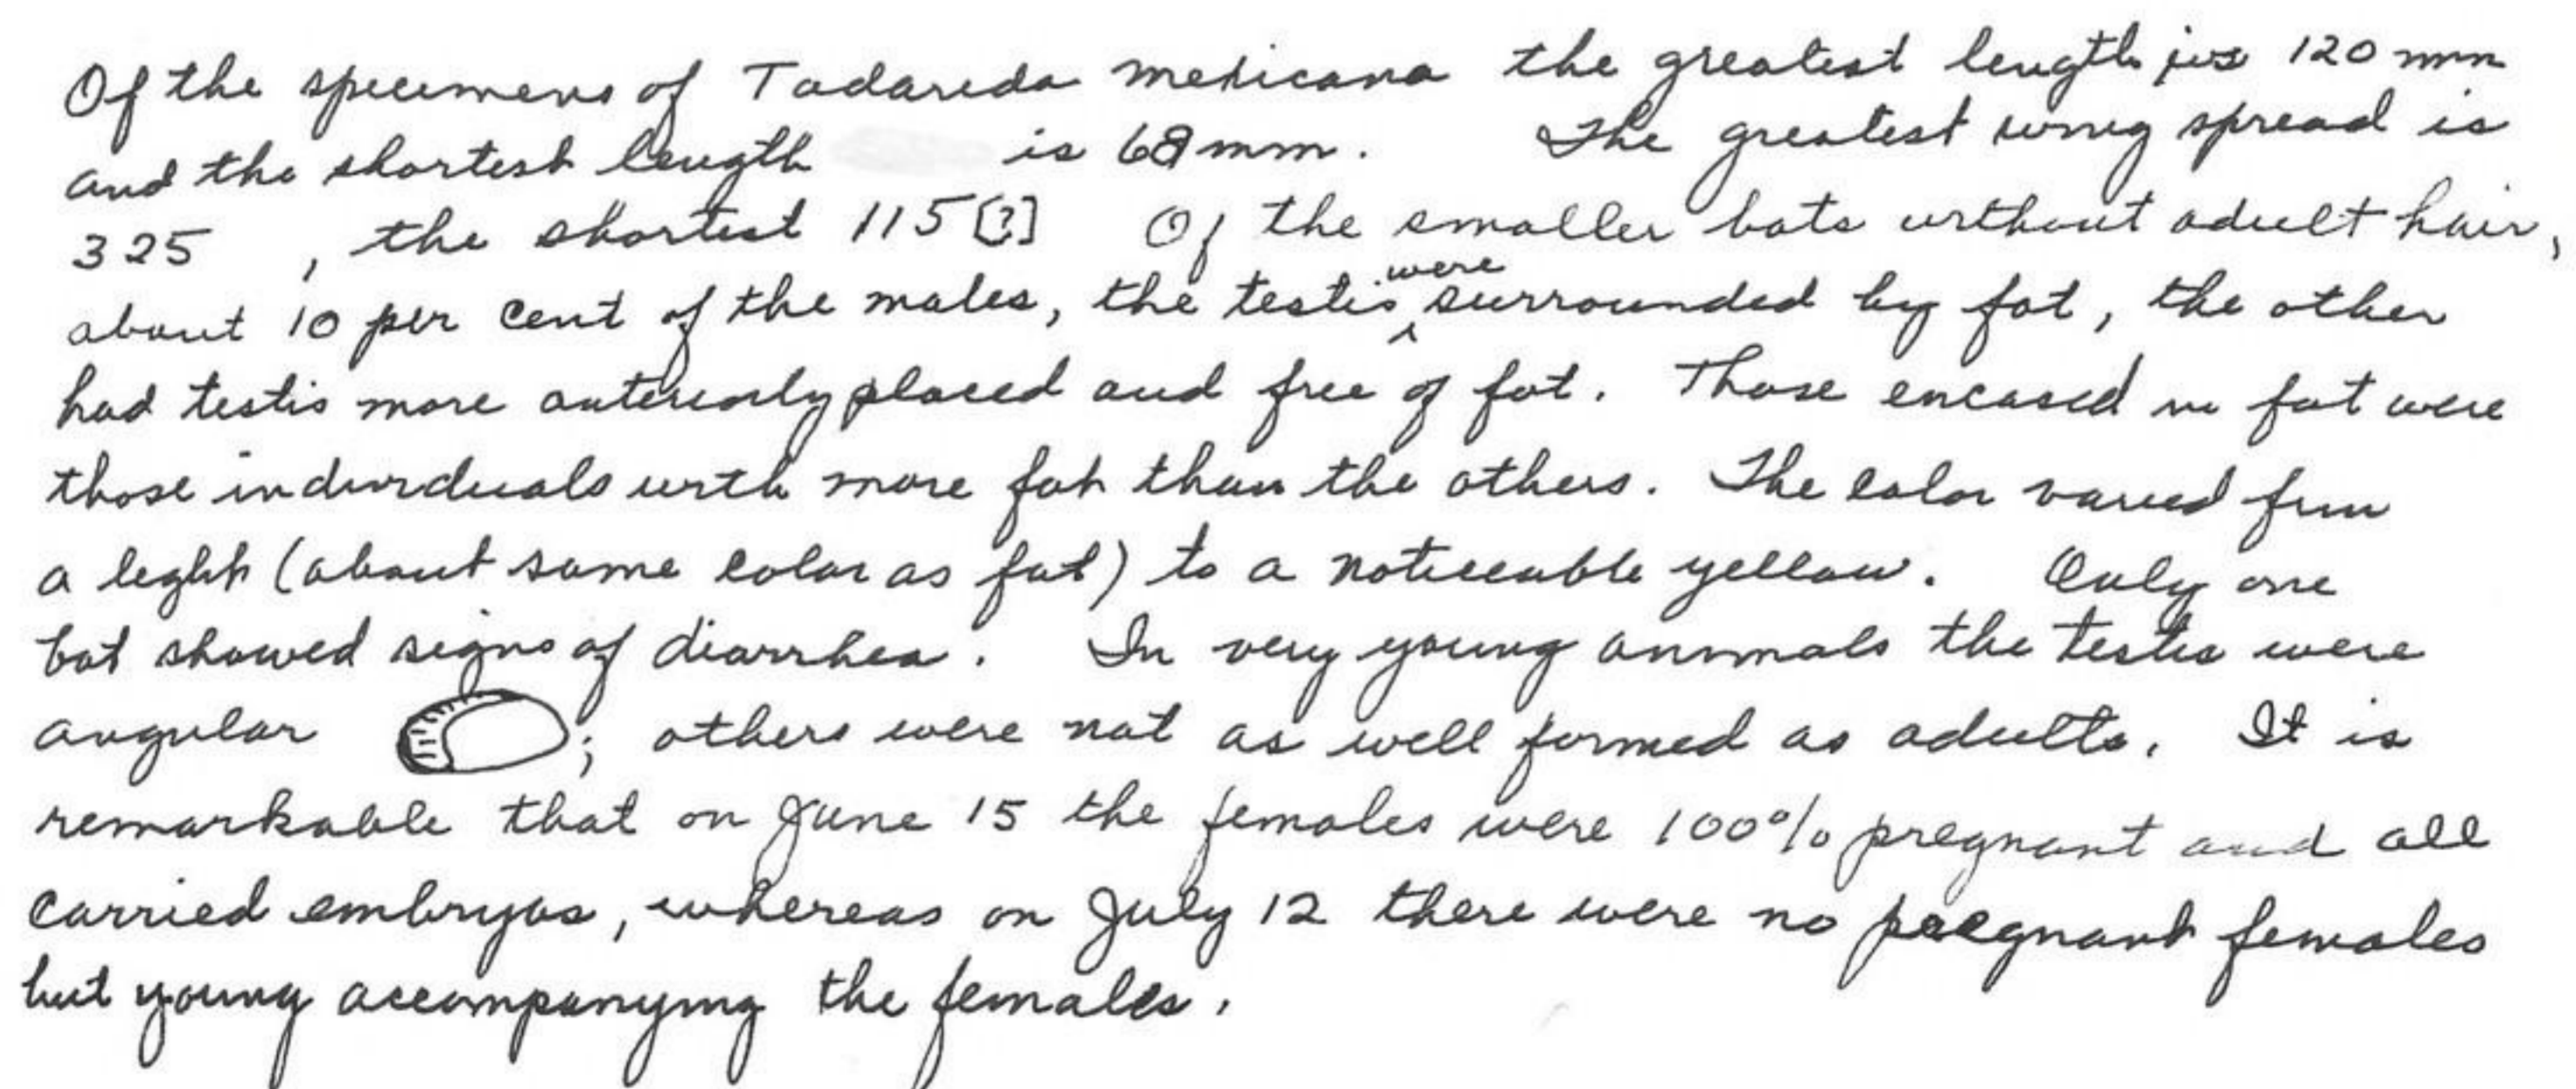 Of the specimens of Tadarida mexicana the greatest length is 120 mm
and the shortest length is 68 mm. The greatest wing spread is
325 , the shortest 115 [?] Of the smaller bats without adult hair,
about 10 per cent of the males, the testis were surrounded by fat, the other
had testis more anteriorly placed and free of fat. Those encased in fat were
those individuals with more fat than the others. The color varied from
a light (about same color as fat) to a noticeable yellow. Only one
bat showed signs of diarrhea. In very young animals the testis were
angular ; others were not as well formed as adults. It is
remarkable that on June 15 the females were 100% pregnant and all
carried embryos, whereas on July 12 there were no pregnant females
but young accompanying the females.